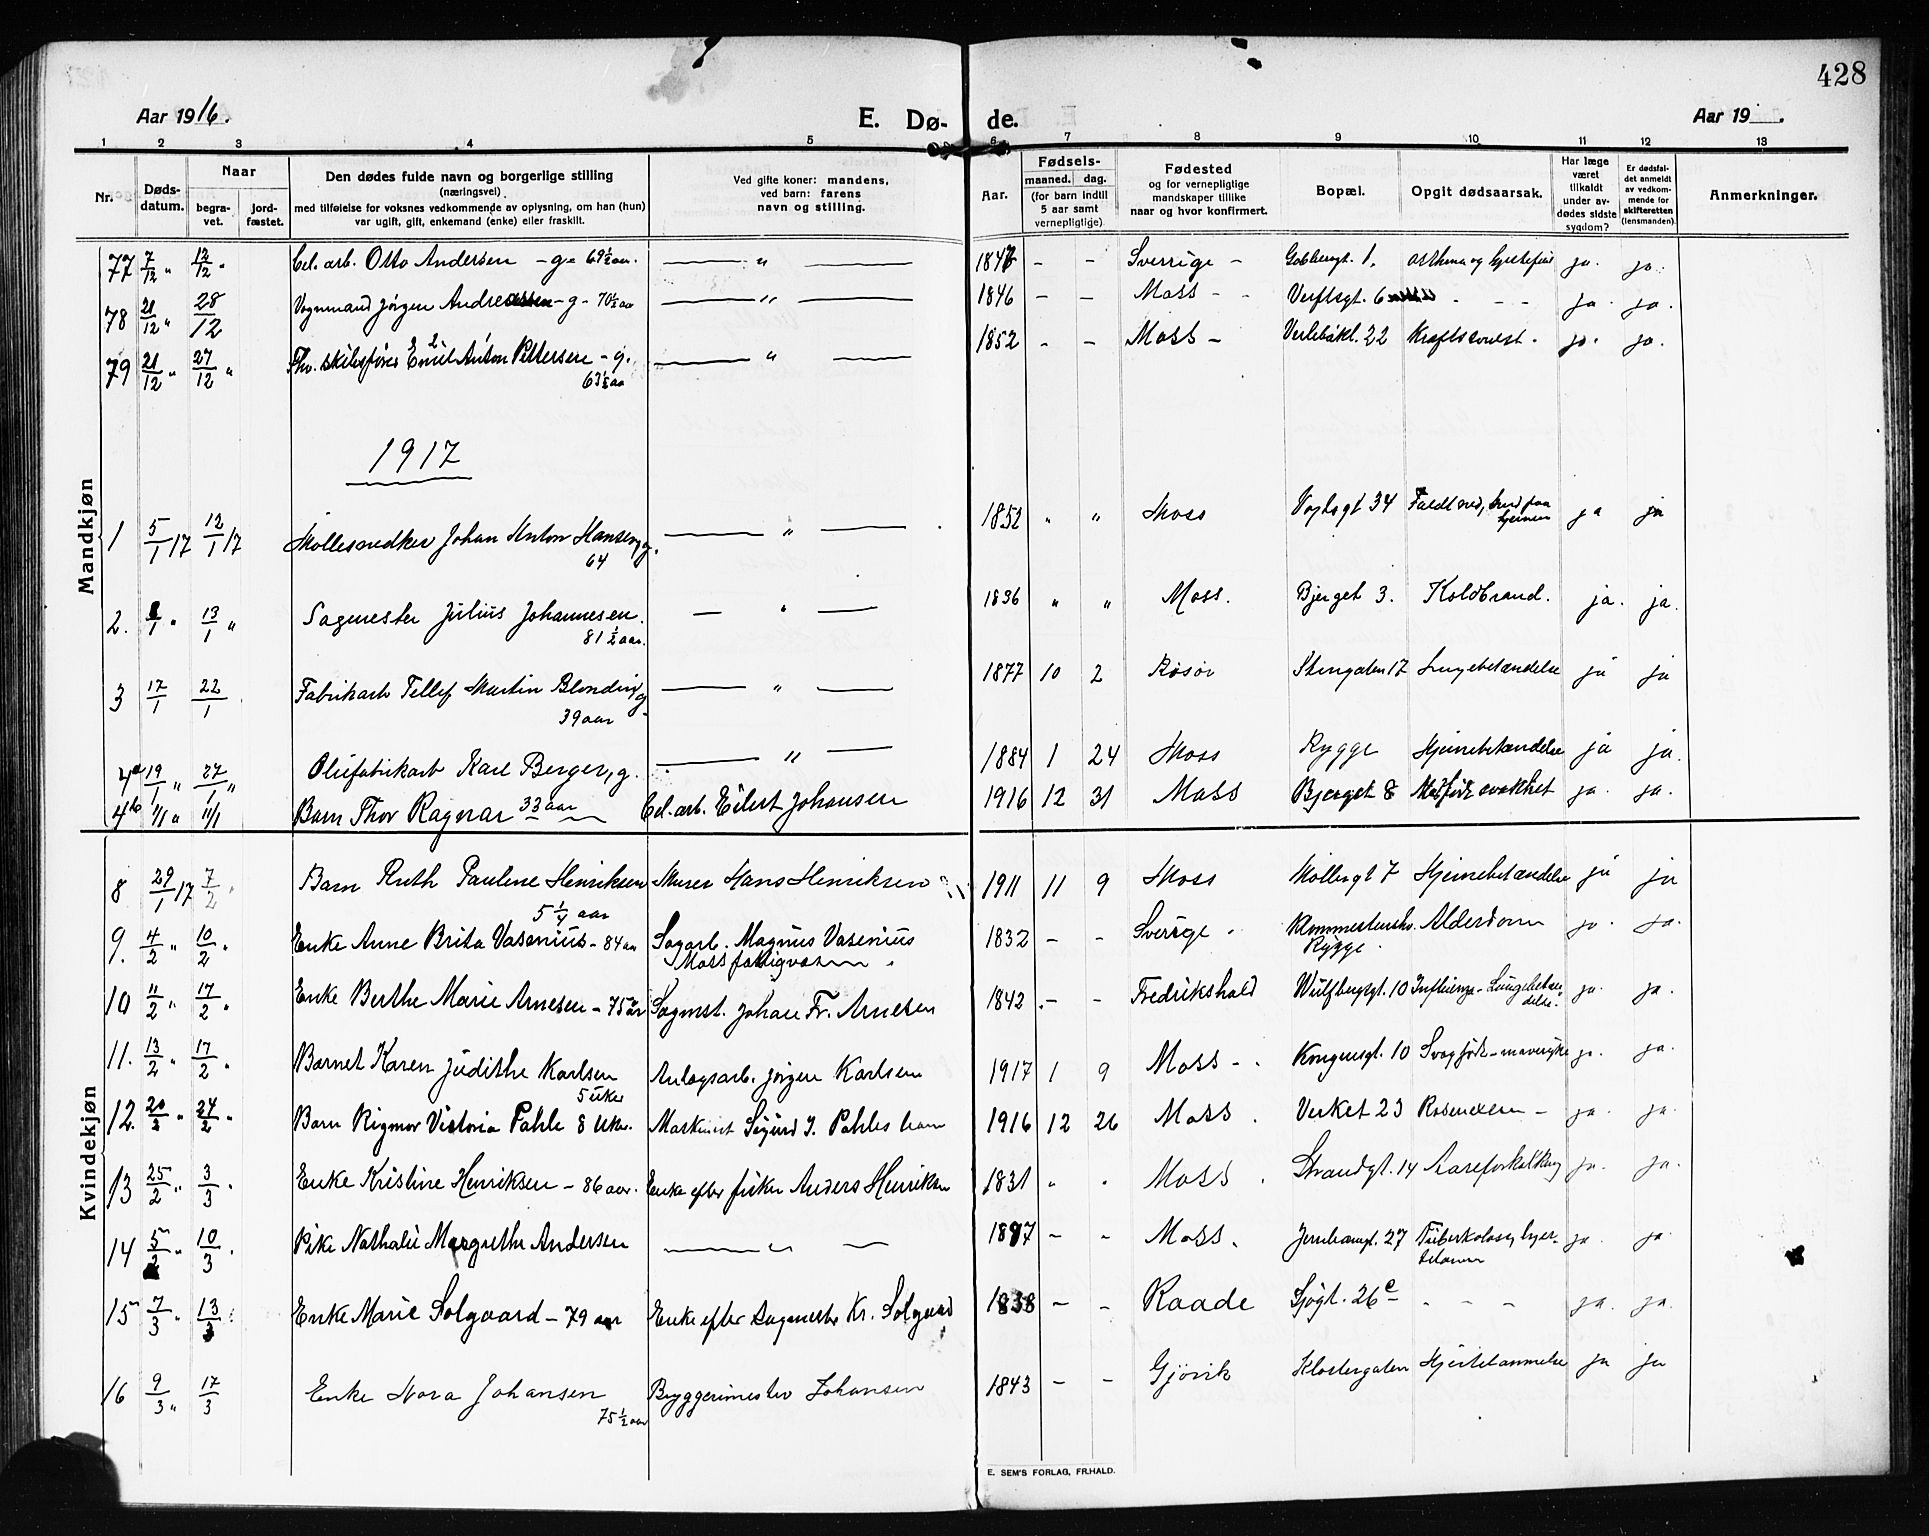 428
Aar 1916.
E. Dø-
de.
Aar 19 .
1 2 3 4 5 6 7 8 9 10 11 12 13
Nr.
Døds-
datum.
Naar
begra-
vet.
jord-
fæstet.
Den dødes fulde navn og borgerlige stilling
(næringsvei)
med tilføielse for voksnes vedkommende av oplysning, om han (hun)
var ugift, gift, enkemand (enke) eller fraskilt.
Ved gifte koner: mandens,
ved barn: farens
navn og stilling.
Aar.
Fødsels-
maaned. dag.
(for barn indtil
5 aar samt
vernepligtige)
Fødested
og for vernepligtige
mandskaper tillike
naar og hvor konfirmert.
Bopæl.
Opgit dødsaarsak.
Har læge
været
tilkaldt
under av-
dødes sidste
sygdom?
Er dødsfal-
det anmeldt
av vedkom-
mende for
skifteretten
(lensmanden).
Anmerkninger.
Mandkjøn
77 7/12 " 12/12 " Cel. arb. Otto Andersen - g - 69½ aar. " 1847 - - Sverrige - 1. asthma og ja. ja.
78 21/12 " 28/12 Vognmand Jørgen - g - 70½ aar " 1846 - - Moss - - Verftsgt. 6 - - - ja. ja.
79 21/12 " 27/12 " Fhv. skibsfører Emil Anton Pettersen - g. 63½ aar " 1852 - - Moss - 22 ja. ja.
1917
1 5/1 17 12/1 17 Møllesnedker Johan Anton Hansen, g. 64 " 1852 " " Moss Vogtsgt 34 Faldt ned, ja ja
2. /1 " 13/1 " Sagmester Julius Johannesen. 81½ aar. " 1836 " " Moss. Bjerget 3. Koldbrand. ja. ja.
3 17/1 22/1 Fabrikarb Tellef Martin g 39 aar " 1877 10 2 Risør Stengaten 17 Lungebetændelse ja ja
4a 19/1 " 27/1 " Oliefabrikarb Karl Berger, g. 33 aar " 1884 1 24 Moss Rygge Hjernebetændelse ja ja.
4b 11/1 " 11/1 Barn Thor Ragnar Cel. arb. Eilert Johansen 1916 12 31 Moss Bjerget 8 svakhet ja. ja.
Kvindekjøn
8 29/1 17 7/2 " Barn Ruth Pauline Henriksen 5¼ aar Murer Hans Henriksen 1911 11 9 Moss Møllergt 7 Hjernebetændelse ja ja
9. 4/2 " 10/2 " Enke Anne Brita Vasenius - 84 aar Sagarb. Magnus Vasenius Moss fattigvæsen. 1832 - - Sverige - Rygge. Alderdom ja. ja.
10 11/2 " 17/2 " Enke Berthe Marie Arnesen - 75 aar Sagmst. Johan Fr. Arnesen 1842 - - Fredrikshald Wulfbergsgt. 10 Influenza - Lungebetændelse. ja. ja.
11. 13/2 " 17/2 " Barnet Karen Judithe Karlsen 5 uker Anlægsarb. Jørgen Karlsen 1917 1 9 Moss - . Kongensgt. 10 Svag født - mavesyke ja. ja.
12. 20/2 " 24/2 " Barn Rigmor Victoria Pahle 8 Uker. Maskinist Sigurd J. Pahles barn 1916 12 26 Moss . Verket 23 - ja. ja.
13 25/2 " 3/3 " Enke Kristine Henriksen - 86 aar. Enke efter fisker Anders Henriksen 1831 " " Moss . Strandgt. 14 Aareforkalkning ja. ja.
14 5/3 " 10/3 " Pike Nathalie Margrethe Andersen " 1897 - - Moss . 27 ja. ja.
15 7/3 " 13/3 : Enke Marie Solgaard - 79 aar Enke efter Sagmester Kr. Solgaard 1838 - - Raade Sjøgt. 26c - - - ja. ja.
16 9/3 " 17/3 Enke Nora Johansen 75½ aar Bryggerimester Johansen 1843 - - Gjøvik Klostergaten Hjertelammelse ja ja
E. SEM'S FORLAG, FR.HALD.